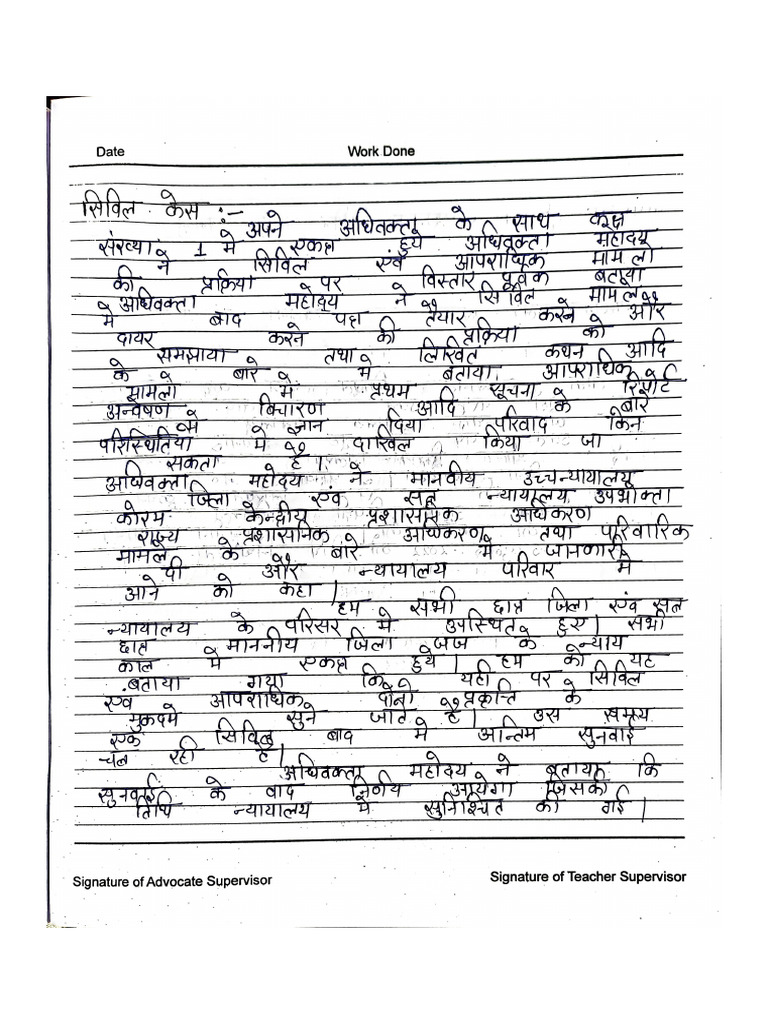 Date Work Done
सिविल केस :-
अपने अधिवक्ता के साथ कक्ष
संख्या 1 मे एकत्र हुये अधिवक्ता महोदय
ने सिविल एंव आपराधिक मामलो
की प्रक्रिया पर विस्तार पूर्वक बताया
अधिवक्ता महोदय ने सिविल मामले
मे बाद पत्र तैयार करने और
दायर करने की प्रक्रिया को
समझाया तथा लिखित कथन आदि
के बारे मे बताया आपराधिक
मामलो मे प्रथम सूचना रिपोर्ट
अन्वेषण विचारण आदि के बारे
मे ज्ञान दिया परिवाद किन
परिस्थितिया मे दाखिल किया जा
सकता है।
अधिवक्ता महोदय ने मानवीय उच्चन्यायालय
जिला एंव सत्र न्यायालय उपभोक्ता
कोरम केन्द्रीय प्रशासनिक अधिकरण
राज्य प्रशासनिक अधिकरण तथा पारिवारिक
मामले के बारे मे जानगारी
दी और न्यायालय परिवार मे
आने को कहा।
हम सभी छात्र जिला एंव सत्र
न्यायालय के परिसर मे उपस्थित हुए। सभी
छात्र माननीय जिला जज के न्याय
काल मे एकत्र हुये। हम को यह
बताया गया कि यहाँ पर सिविल
एंव आपराधिक दोनो प्रकृत्ति के
मुकदमे सुने जाते है। उस समय
एक सिविल बाद मे अन्तिम सुनवाई
चल रही है।
अधिवक्ता महोदय ने बताया कि
सुनवाई के बाद निर्णय आयेगा जिसकी
तिथि न्यायालय मे सुनिश्चित की गई।
Signature of Advocate Supervisor Signature of Teacher Supervisor